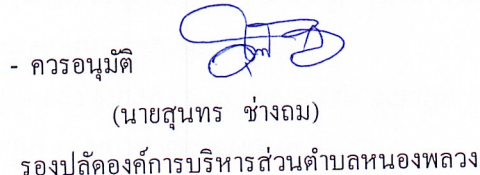 - ควรอนุมัติ
(นายสุนทร ช่างถม)
รองปลัดองค์การบริหารส่วนตำบลหนองพลวง